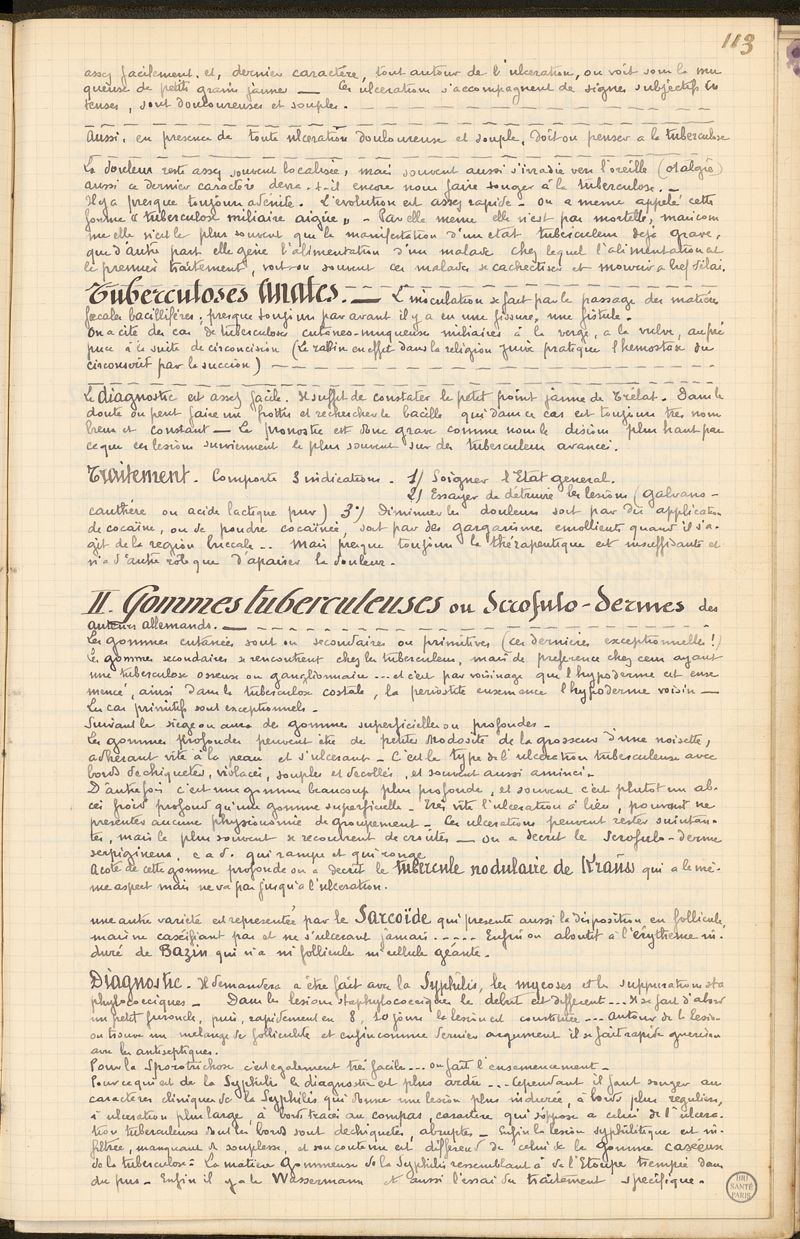 113
assez facilement. et, dernier caractère, tout autour de l'ulceration, on voit sous la mu
queuse de petits grains jaunes — Ces ulcerations s'accompagnent de signes subjectifs in
tenses, sont douloureuses et souples.
Aussi, en presence de toute ulcération douloureuse et souple, doit on penser a la tuberculose
La douleur reste assez souvent localisée, mais souvent aussi s'irradie vers l'oreille (otalgie)
aussi ce dernier caractère devra-t-il encore nous faire songer à la tuberculose. —
Il y a presque toujours adénite. L'evolution est assez rapide - on a meme appelé cette
forme "tuberculose miliaire aigüe" - Par elle meme elle n'est pas mortelle, mais com
me elle n'est le plus souvent que la manifestation d'un etat tuberculeux dejà grave,
que d'autre part elle gêne l'alimentation d'un malade chez lequel l'alimentation est
le premier traitement, voit-on souvent ces malades se cachectiser et mourir a bref délai.
Tuberculoses Anales. — L'inoculation se fait par le passage des matières
fœcales bacillifères; presque toujours par avant il y a eu une fissure, une fistule.
On a cité des cas de tuberculoses cutaneo-muqueuses miliaires à la verge, a la vulve, au pré
puce à la suite de circoncision (Le rabin en effet dans la religion juive pratique l'hemostase du
circonscrit par la succion) —
Le diagnostic est assez facile. Il suffit de constater le petit point jaune de Trélat. Dans le
doute on peut faire un frottis et rechercher le bacille qui dans ce cas est toujours tres nom
breux et constant — Le pronostic est donc grave comme nous le disions plus haut par
ce que ces lesions surviennent le plus souvent sur des tuberculeux avancés.
Traitement. Comporte 3 indications. 1/ Soigner l'Etat general.
2/ Essayer de détruire les lesions (galvano-
cauthère ou acide lactique pur) 3°/ Diminuer les douleurs soit par des applications
de cocaïne, ou de poudre cocaïnée, soit par des gargarismes emollients quand il s'a-
git de la region buccale .. Mais presque toujours la thérapeutique est insuffisante et
n'a d'autre rôle que d'apaiser la douleur.
II. Gommes tuberculeuses ou Scrofulo-dermes des
auteurs allemands. —
Les gommes cutanées sont ou secondaires ou primitives (ces dernieres exceptionnelles!)
Les gommes secondaires se rencontrent chez les tuberculeux, mais de preference chez ceux ayant
une tuberculose osseuse ou ganglionnaire ... et c'est par voisinage que l'hypoderme est ense
mencé, ainsi dans la tuberculose costale, la periostite ensemence l'hypoderme voisin —
Les cas primitifs sont exceptionnels.
Suivant le siège on aura des gommes superficielles ou profondes -
Les gommes profondes peuvent être de petites nodosités de la grosseur d'une noisette,
adhérant vite à la peau et s'ulcerant - C'est le type de l'ulceration tuberculeuse avec
bords dechiquetés, violacés, souples et decollés, et souvent aussi amincis.
D'autrefois c'est une gomme beaucoup plus profonde, et souvent c'est plutôt un ab-
cès froid profond qu'une gomme superficielle - Très vite l'ulceration à lieu, pouvant ne
presenter aucune physionomie de groupement - Ces ulcerations peuvent rester suintan-
tes, mais le plus souvent se recouvrent de croûtes — On a decrit le Scrofulo-derme
serpigineux, c a d. qui rampe et qui ronge
A coté de cette gomme profonde on a decrit le tubercule nodulaire de Krauss qui a le mê-
me aspect mais ne va pas jusqu'à l'ulceration.
une autre varieté est representée par le Sarcoïde qui presente aussi la disposition en follicule,
mais ne caséifiant pas et ne s'ulcerant jamais ..... Enfin on aboutit à l'erythème in-
duré de Bazin qui n'a ni follicule ni cellule géante.
Diagnostic. Il demandera a être fait avec la Syphilis, les mycoses et les suppurations sta
phylococciques - Dans les lesions staphylococciques le debut est different ... Il se fait d'abord
un petit furoncle, puis, rapidement en 8, 10 jours la lesion est constituée ... autour de la lesion
on trouve un melange de folliculite et enfin comme dernier argument il se fait rapide guerison
avec les antiseptiques.
Pour la Sporotrichose c'est egalement très facile ... on fait l'ensemencement -
Pour ce qui est de la Syphilis le diagnostic est plus ardu ... Cependant il faut songer au
caractères cliniques de la Syphilis qui donne une lesion plus indurée, à bords plus reguliers,
à ulceration plus large à bords tracés au compas, caractère qui s'oppose a celui de l'ulcera-
tion tuberculeuse dont les bords sont dechiquetés, abruptes - Enfin la lesion syphilitique est in-
filtrée, manquant de souplesse, et son contenu est different de celui de la gomme caséeuse
de la tuberculose: La matière gommeuse de la Syphilis ressemblant à de l'Etoupe trempée dans
du pus - Enfin il y a le Wassermann et aussi l'essai du traitement specifique.
BIU
SANTÉ
PARIS